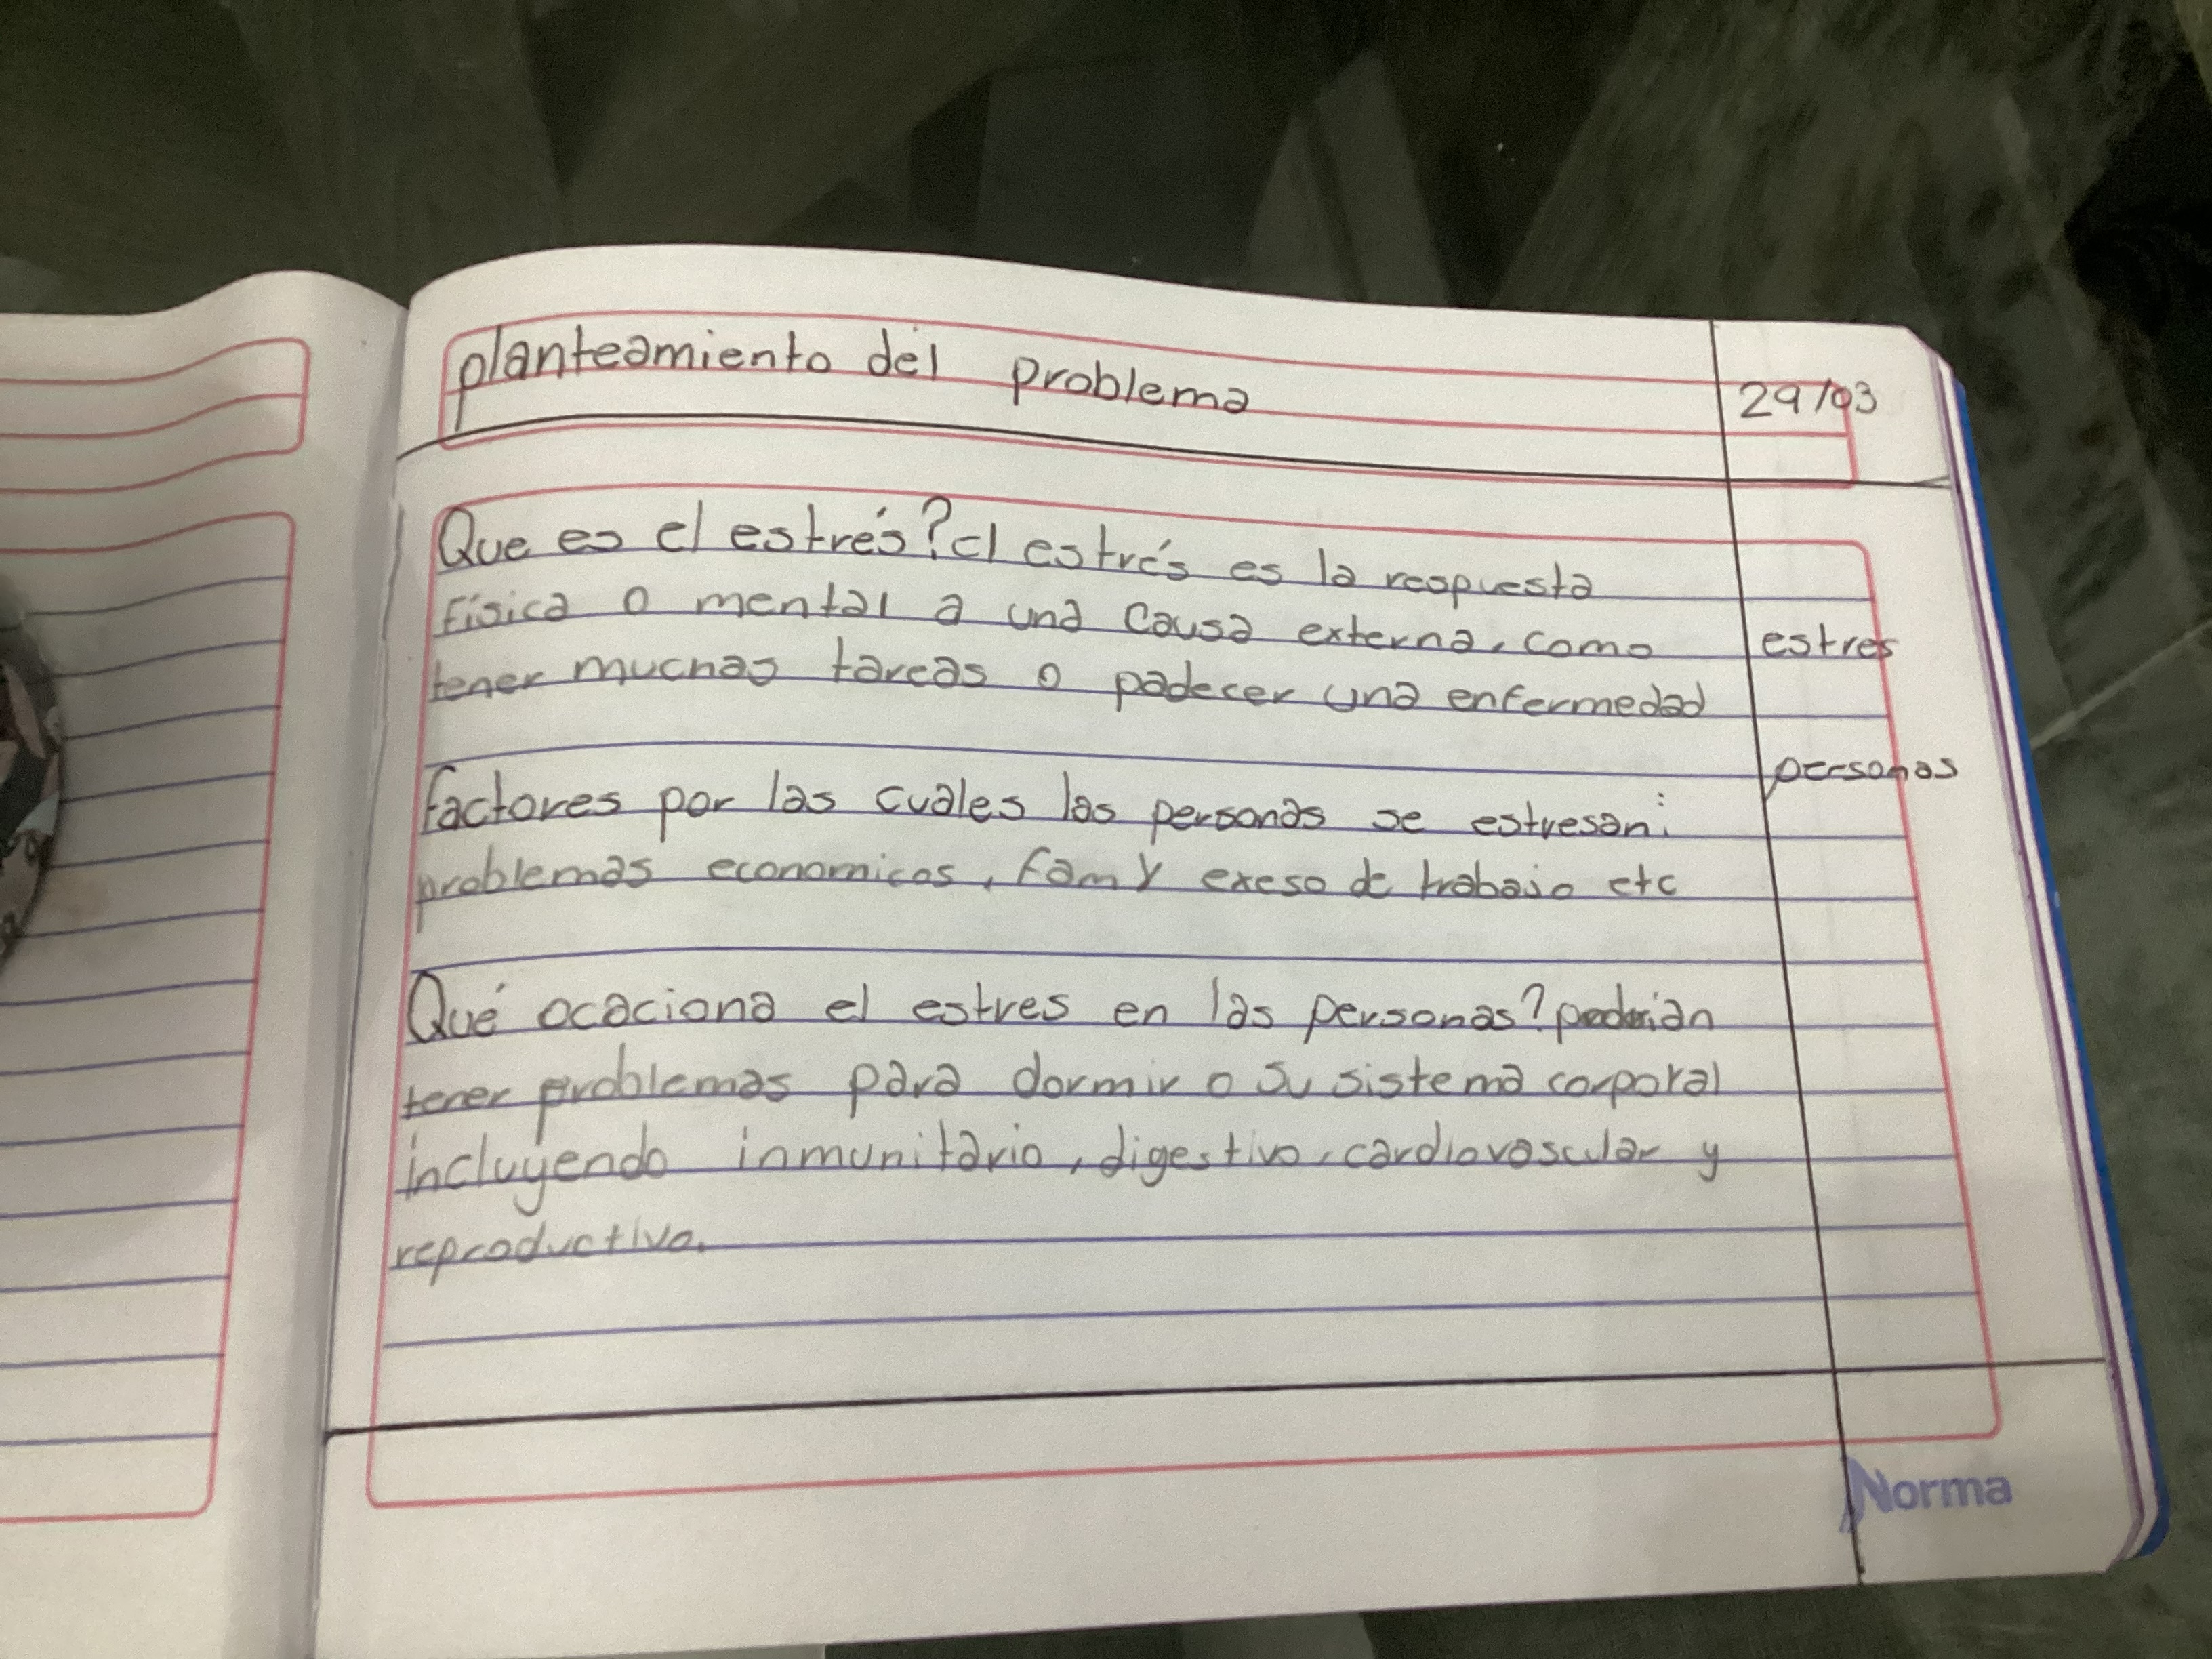 planteamiento del problema
29/03
Que es el estrés? el estrés es la respuesta
física o mental a una causa externa, como
estres
tener muchas tareas o padecer una enfermedad
personas
factores por las cuales las personas se estresan:
problemas economicos, fam y exeso de trabajo etc
Qué ocaciona el estres en las personas? podrian
tener problemas para dormir o su sistema corporal
incluyendo inmunitario, digestivo, cardiovascular y
reproductivo.
Norma